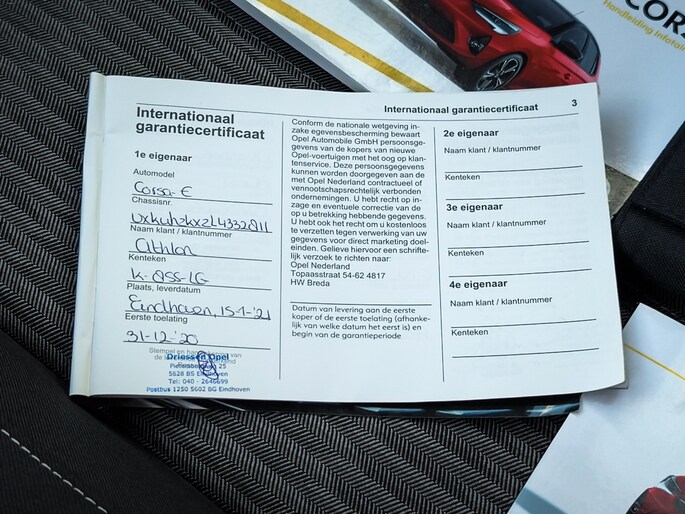 CORS
Handleiding Infotain
Internationaal garantiecertificaat
3
Internationaal
garantiecertificaat
1e eigenaar
Automodel
Corsa-E
Chassisnr.
Naam klant / klantnummer
Athlon
Kenteken
Plaats, leverdatum
Eindhoven, 15-1-'21
Eerste toelating
31-12-'20
Stempel en han van
de
Driessen Opel
25
5628 BS Eindhoven
Tel: 040 - 2646699
Postbus 1250 5602 BG Eindhoven
Conform de nationale wetgeving in-
zake egevensbescherming bewaart
Opel Automobile GmbH persoonsge-
gevens van de kopers van nieuwe
Opel-voertuigen met het oog op klan-
tenservice. Deze persoonsgegevens
kunnen worden doorgegeven aan de
met Opel Nederland contractueel of
vennootschapsrechtelijk verbonden
ondernemingen. U hebt recht op in-
zage en eventuele correctie van de
op u betrekking hebbende gegevens.
U hebt ook het recht om u kosteloos
te verzetten tegen verwerking van uw
gegevens voor direct marketing doel-
einden. Gelieve hiervoor een schrifte-
lijk verzoek te richten naar:
Opel Nederland
Topaasstraat 54-62 4817
HW Breda
Datum van levering aan de eerste
koper of de eerste toelating (afhanke-
lijk van welke datum het eerst is) en
begin van de garantieperiode
2e eigenaar
Naam klant / klantnummer
Kenteken
3e eigenaar
Naam klant / klantnummer
Kenteken
4e eigenaar
Naam klant / klantnummer
Kenteken